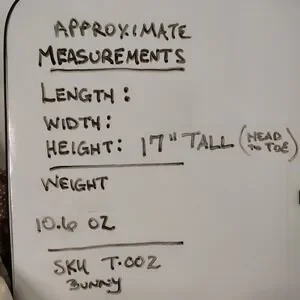 APPROXIMATE
MEASUREMENTS
LENGTH:
WIDTH:
HEIGHT: 17" TALL (HEAD TO TOE)
WEIGHT
10.6 OZ
SKU T.002
BUNNY